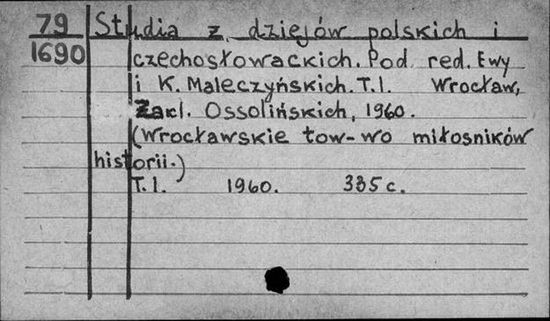 79
1690
Studia z dziejów polskich i
czechosłowackich. Pod red. Ewy
i K. Maleczyńskich. T.I. Wrocław,
Zakl. Ossolińskich, 1960.
(Wrocławskie tow-wo miłosników
historii.)
T.I. 1960. 335 c.